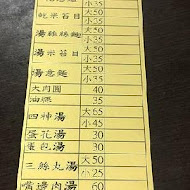 小35
乾米苔目 大50
小35
湯雞絲麵 大50
小35
湯米苔目 大50
小35
湯意麵 大50
小35
大肉圓 40
油粿 35
四神湯 大65
小45
蛋花湯 30
蛋包湯 30
三絲丸湯 大50
小25
嘴邊肉湯 60